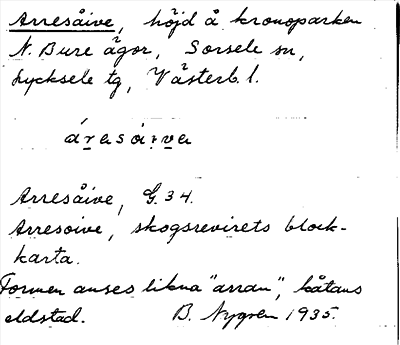 Arresåive, höjd å kronoparken
N. Bure ägor, Sorsele sn,
Lycksele tg, Västerb. l.
áresȧi̭ve
Arresåive, G. 34.
Arresoive, skogsrevirets block-
karta.
Formen anses likna "arran", kåtans
eldstad. B. Nygren 1935.